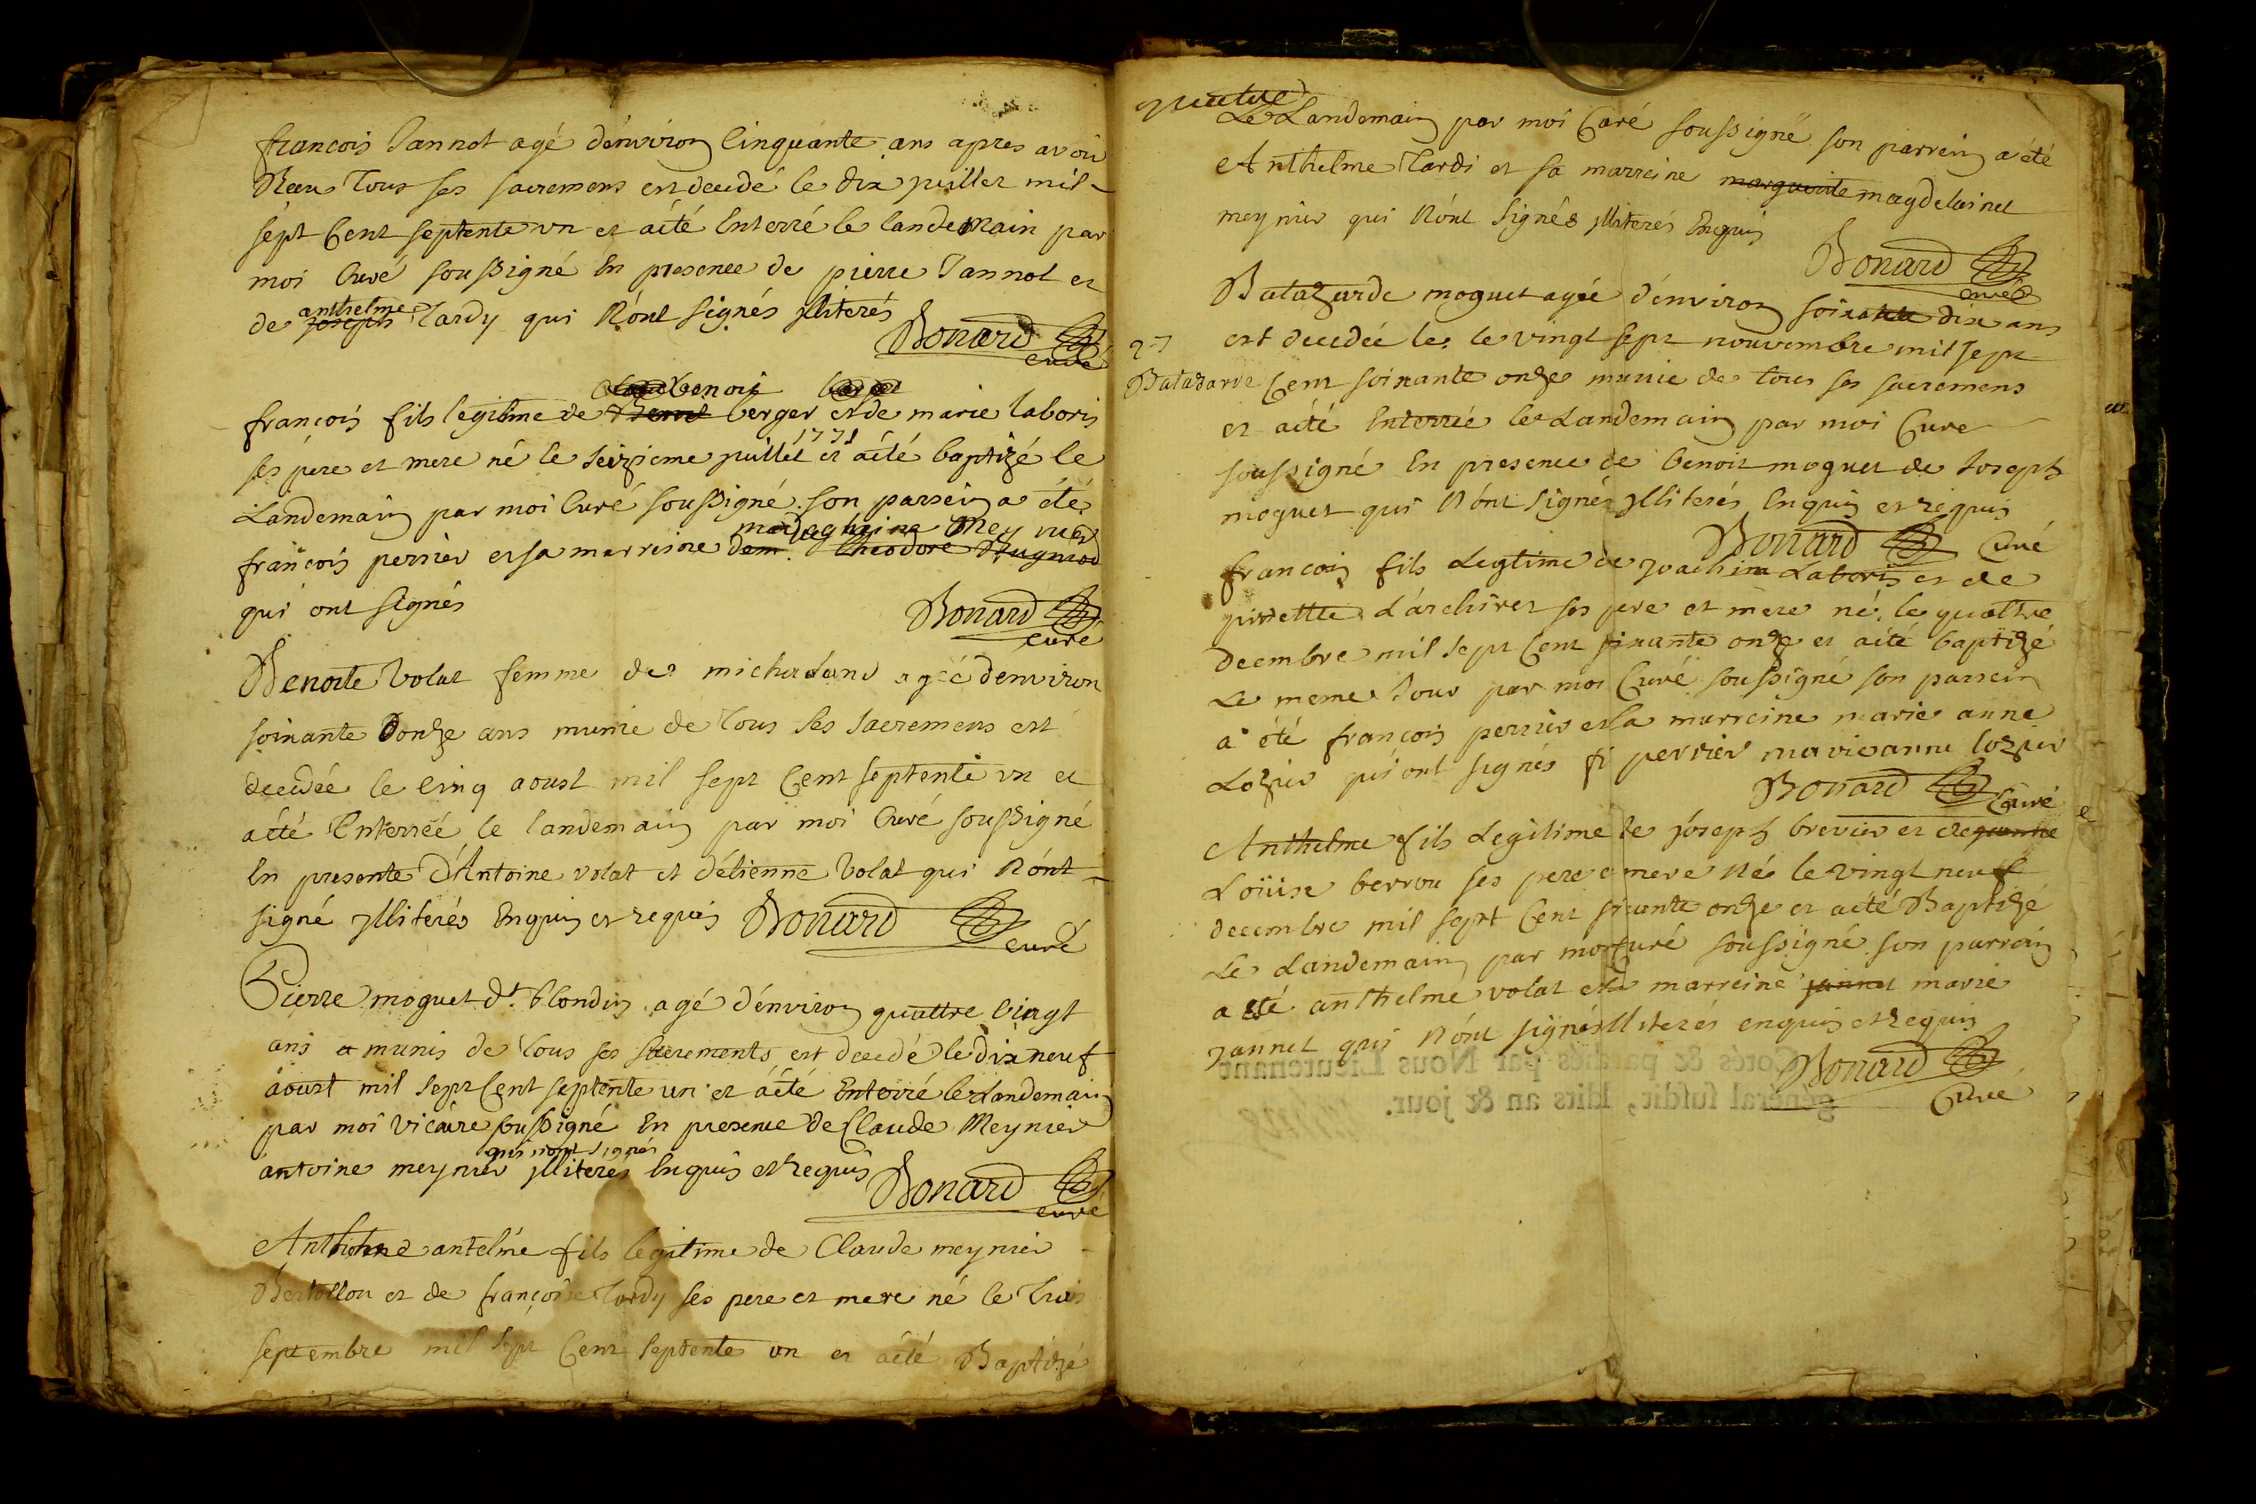 francois Jannot agé dénviron Cinquante ans apres avoir
Receu Tous ses sacremens est decedé le dix juillet mil
sept Cent septente un et aété Enterré le landemain par
moi Curé soussigné En presence de pierre Jannot et
de joseph anthelme Tardy qui Nónt signés jlliterés
Bonard
curé
françois fils legitime de Benoit benoit berger et de marie laboris
ses pere et mere né le seizieme juillet 1771 et aété baptizé le
Landemain par moi Curé soussigné son parrein a été
francois perrier et sa marreine dem Theodore Bugniod magdeghaine Meynier
qui ont signés
Bonard
curé
Benoite volat femme de michadand agée denviron
soixante Donze ans munie de Tous ses sacremens est
decedée le Cinq aoust mil sept Cent septente un et
aété Enterréé le landemain par moi Curé soussigné
En presente D'Antoine volat et d'étienne volat qui Nónt
signé jlliterés Enquis et requis Bonard
curé
Pierre moguet dt. blondin agé dénviron quattre vingt
ans et munis de Tous ses sacrements est decedé le dix neuf
aoust mil sept Cent septente un et áété Enterré le Landemain
par moi vicaire soussigné En presence de Claude Meynier
antoine meynier qui nont signés jlliterés Enquis et Requis Bonard
curé
Anthelme antelme fils legitime de Claude meynier
Bertollon et de françoise Tardy ses pere et mere né le Trois
septembre mil sept Cent septente un et aété Baptizé
quatre
Le Landemain par moi Curé soussigné son parrein a été
Anthelme Tardi et sa marreine marguerite magdelainet
meynier qui Nónt signés jlliterés Enquis
Bonard
curé
Batazarde moguet agée dénviron soixante dix ans
27
est decedée le le vingt sept nouvembre mil sept
Batazarde
Cent soixante onze munie de tous ses sacremens
et aété Enterrée le Landemain par moi Cure
soussigné En presence de benoit moguet de Joseph
moguet qui Nónt signés jlliterés Enquis et requis
Bonard Curé
francois fils Legtime de joachim Laboris et de
L'archiret ses pere et mere né le quattre
decembre mil sept Cent sixante onze et aété baptizé
Le meme Jour par moi Curé soussigné son parrein
a été françois perrier et la marreine marie anne
Lozier qui ont signés fr perrier marieanne lozier
Bonard Curé
Anthelme fils Legitime de joseph brevier et de jeanne
Loüise berrou ses pere e mere Né le vingt neuf
decembre mil sept Cent sixante onze et aété Baptizé
Le Landemain par moi curé soussigné son parrein
a été anthelme volat et la marreine jannet marie
jannet qui Nónt signés jlliterés enquis et Requis
Bonard
Curé
Cotés & paraffés par Nous Lieutenant
général susdit, ldits an & jour.